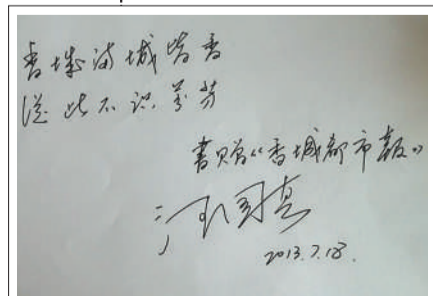 香城满城皆香
从此不识芬芳
書赠《香城都市报》
汪国真
2013.7.18.